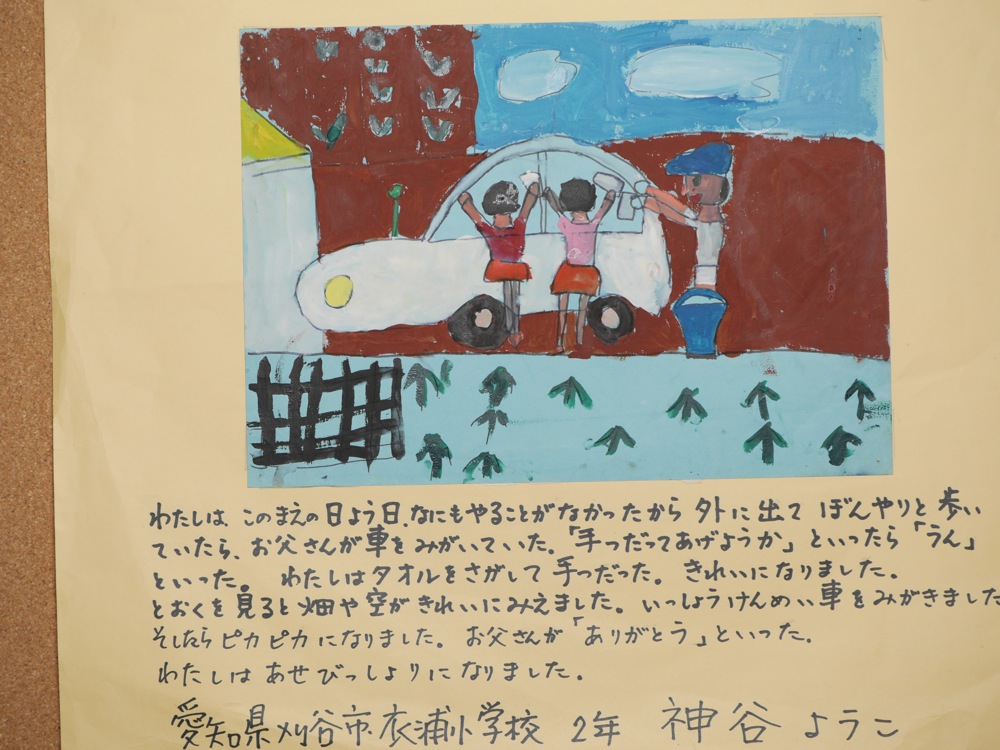 わたしは、このまえの日よう日、なにもやることがなかったから 外に出て ぼんやりと歩い
ていたら、お父さんが車をみがいていた。「手つだってあげようか」といったら「うん」
といった。 わたしはタオルをさがして手つだった。きれいになりました。
とおくを見ると畑や空がきれいにみえました。いっしょうけんめい車をみがきました
そしたらピカピカになりました。お父さんが「ありがとう」といった。
わたしはあせびっしょりになりました。
愛知県刈谷市衣浦小学校 2年 神谷ようこ